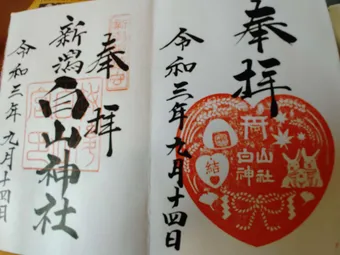 奉拝
令和三年九月十四日
白山
神社
結
奉拝
新潟
白山神社
令和三年九月十四日